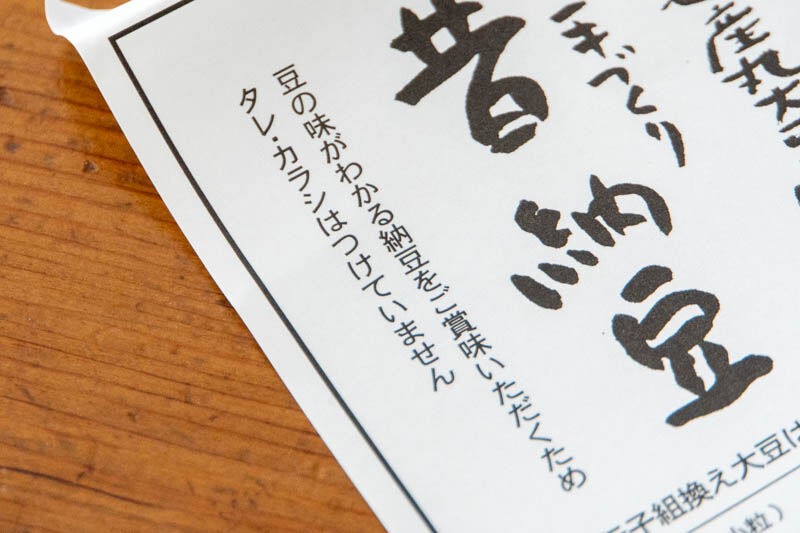 産丸大
手づくり
昔納豆
豆の味がわかる納豆をご賞味いただくため
タレ・カラシはつけていません
子組換え大豆は
小粒）